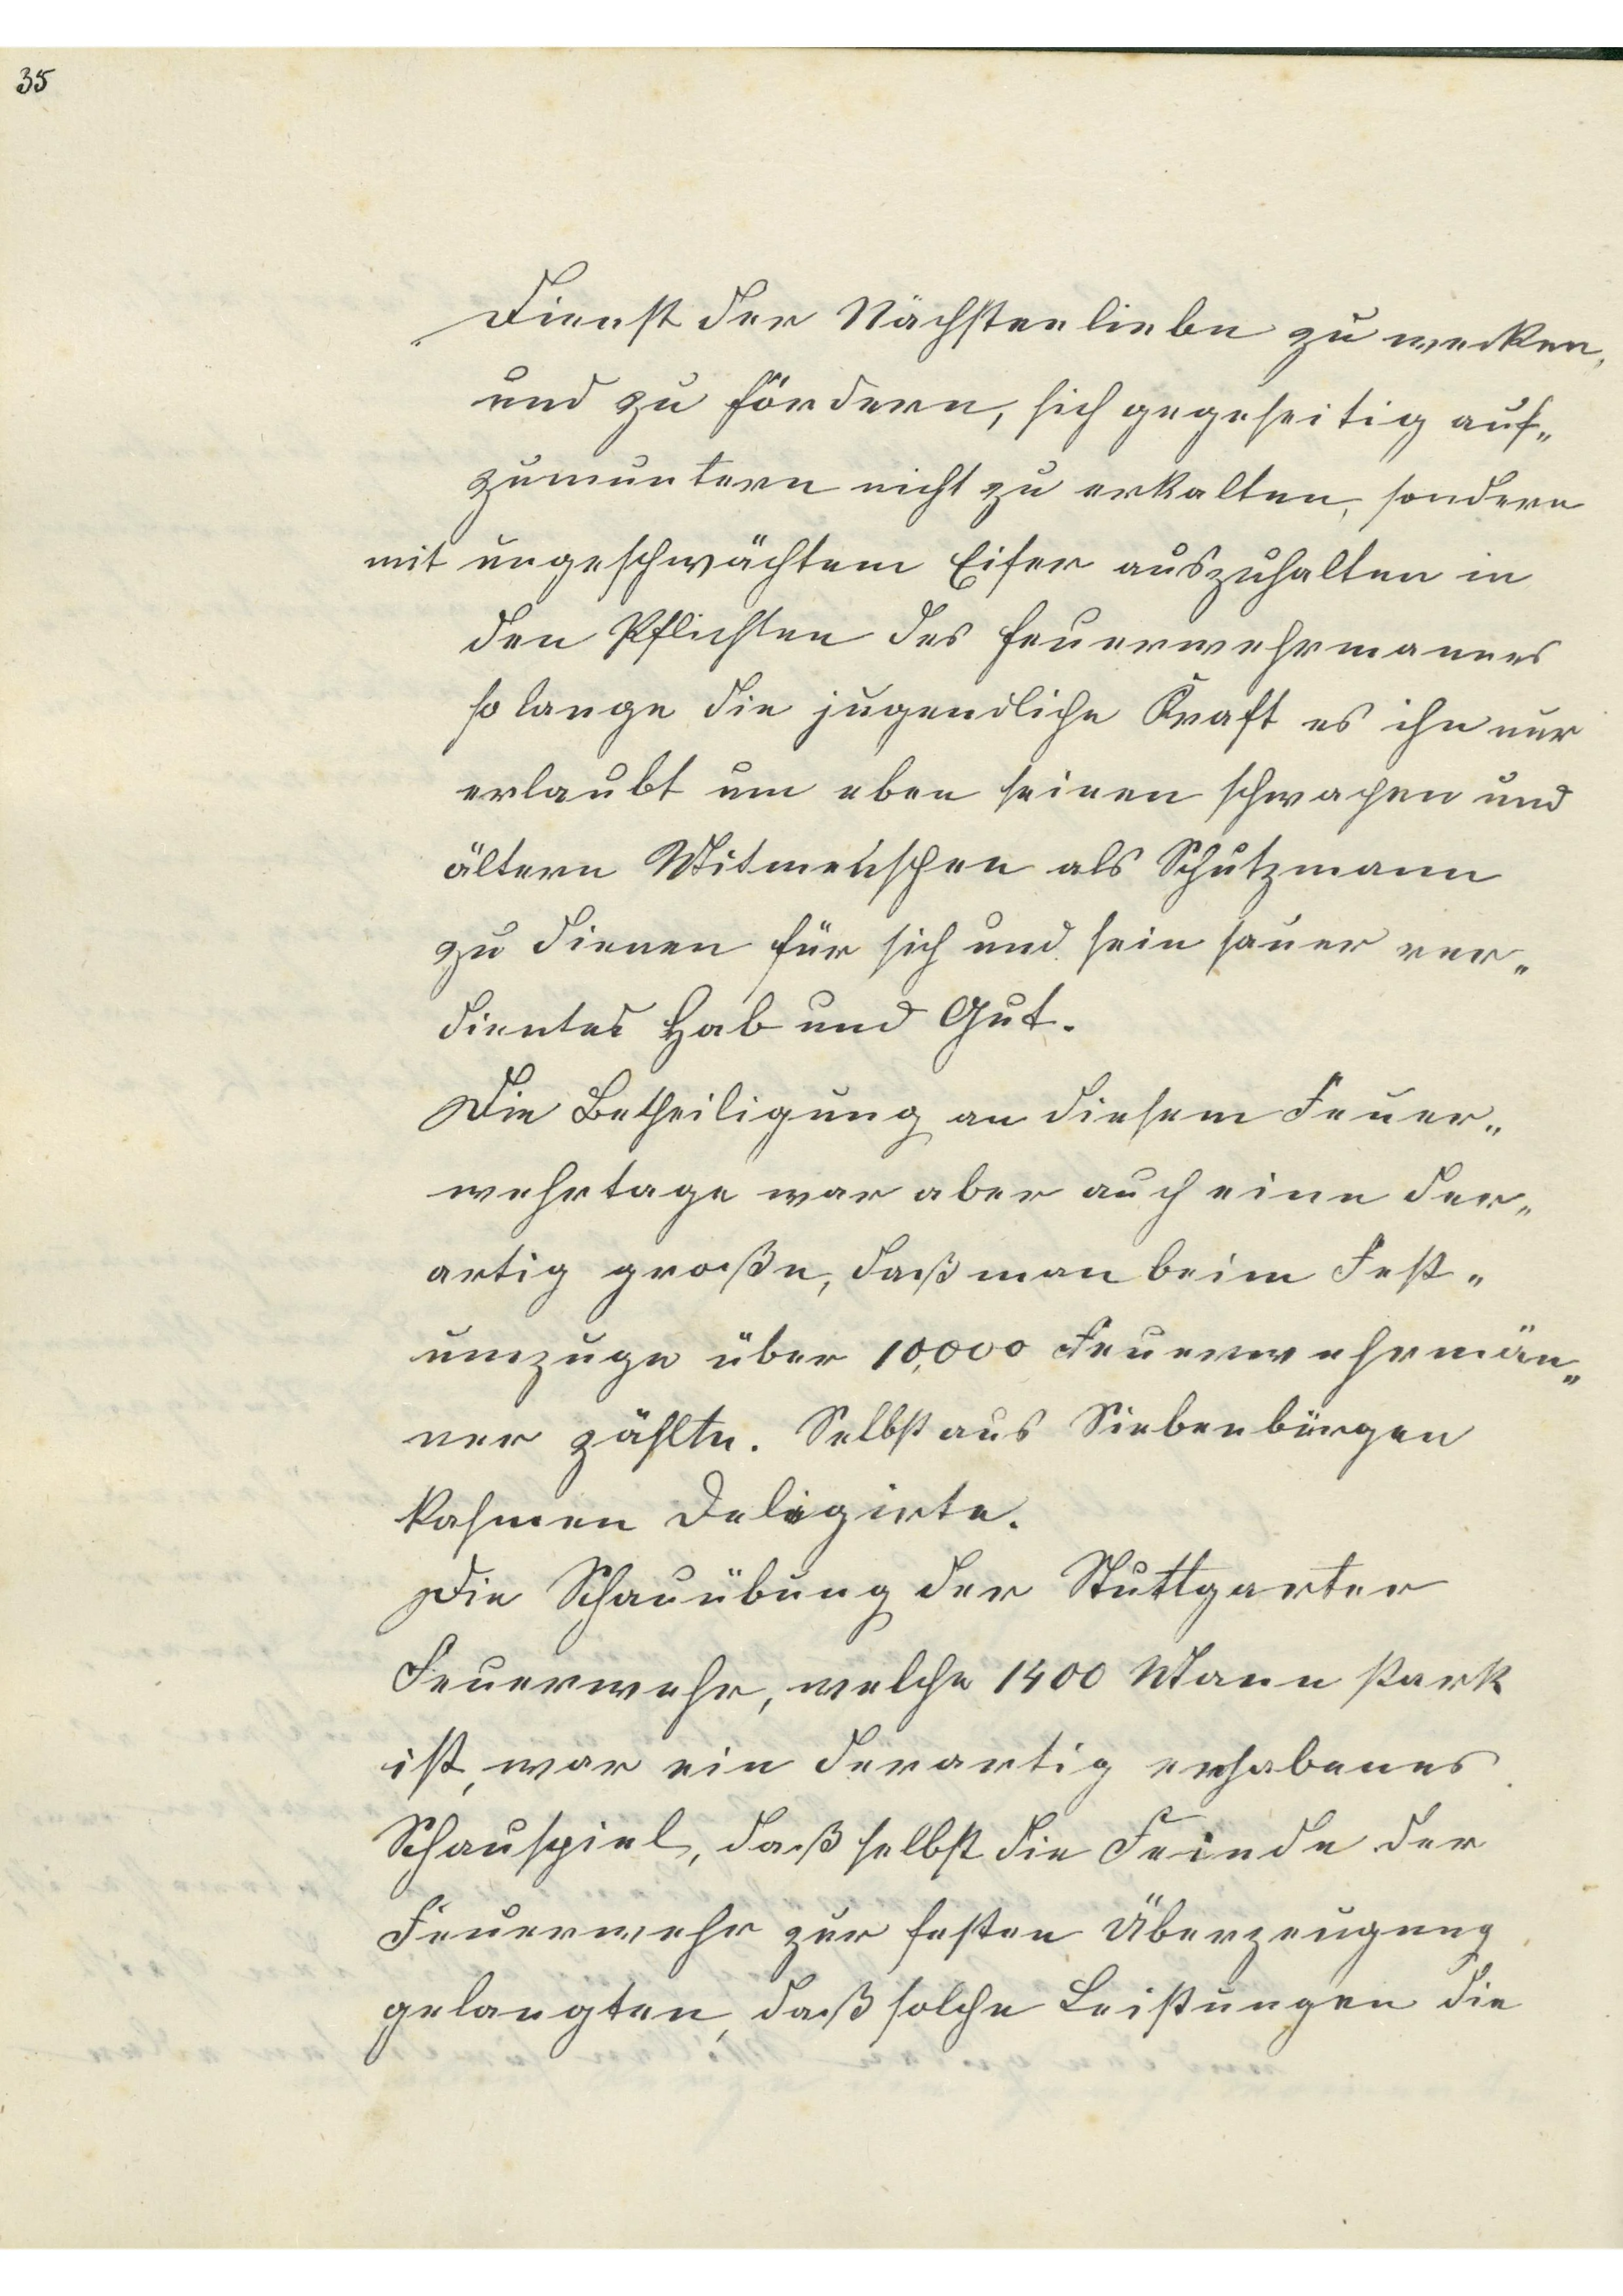 35
Dienst der Nächstenliebe zu wecken,
und zu fördern, sich gegeseitig auf„
zumuntern nicht zu erkalten, sondern
mit ungeschwächtem Eifer auszuhalten in
den Pflichten des Feuerwehrmannes
so lange die jugendliche Kraft es ihn nur
erlaubt um eben seinen schwachen und
ältern Mitmenschen als Schutzmann
zu dienen für sich und sein sauer ver„
dientes Hab und Gut.
Die Betheiligung an diesem Feuer„
wehrtage war aber auch eine der„
artig große, daß man beim Fest„
umzuge über 10,000 Feuerwehrmän„
ner zählte. Selbst aus Siebenbürgen
kahmen Deligirte.
Die Schauübung der Stuttgarter
Feuerwehr, welche 1400 Mann stark
ist, war ein derartig erhabenes
Schauspiel, daß selbst die Feinde der
Feuerwehr zur festen Überzeugung
gelangten, daß solche Leistungen die